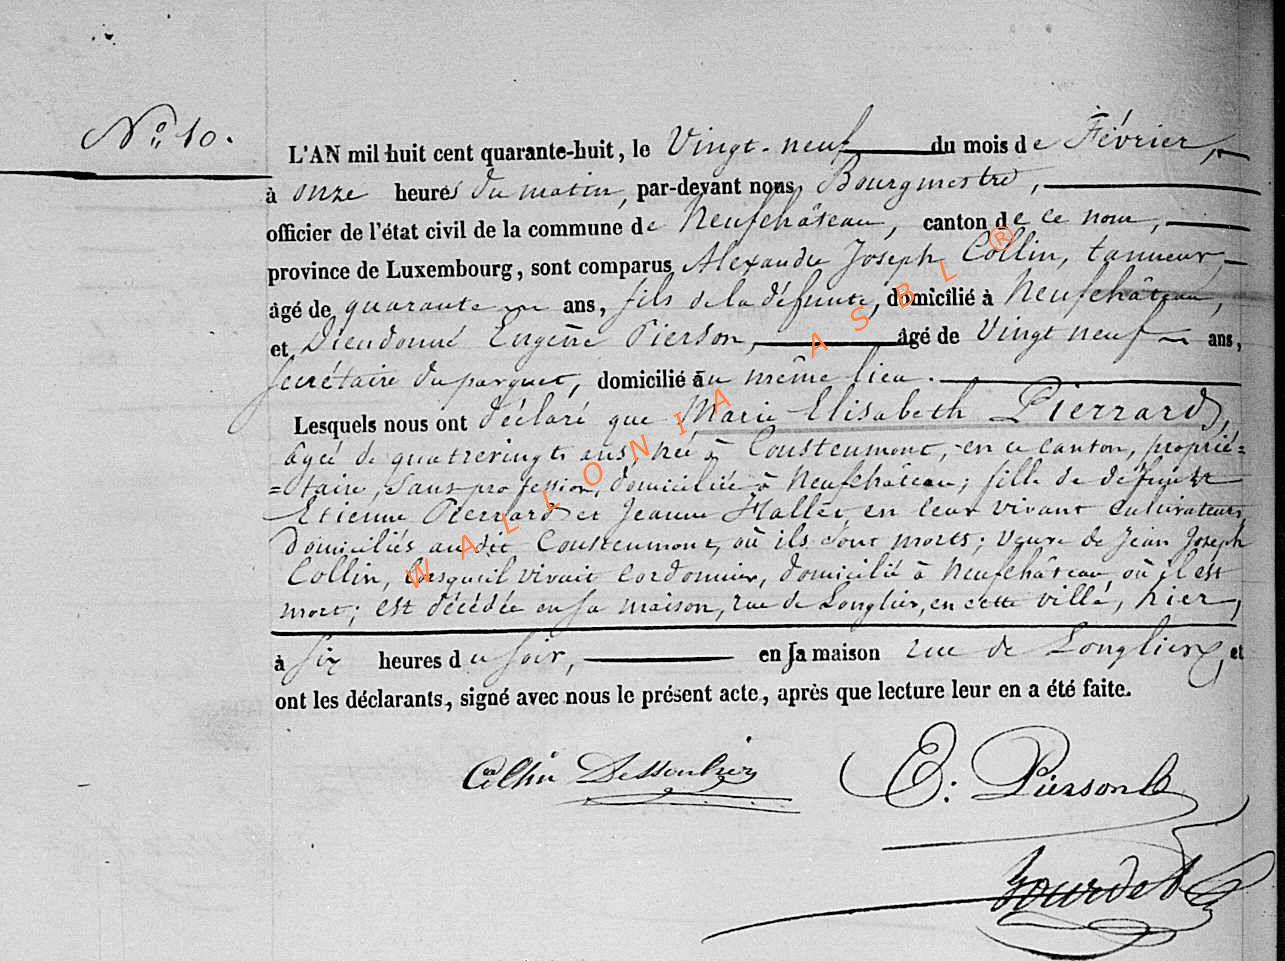 N° 10.
L'AN mil huit cent quarante-huit, le Vingt-neuf du mois de Février,
à onze heures du matin, par-devant nous Bourgmestre,
officier de l'état civil de la commune de Neufchâteau, canton de ce nom,
province de Luxembourg, sont comparus Alexandre Joseph Collin, tanneur,
âgé de quarante ans, fils de la défunte, domicilié à Neufchâteau,
et Dieudonné Eugène Pierson, âgé de Vingt neuf ans,
secrétaire du parquet, domicilié au même lieu.
Lesquels nous ont déclaré que Marie Elisabeth Pierrard,
âgée de quatrevingts ans, née à Cousteumont, en ce canton, proprié=
=taire, sans profession, domiciliée à Neufchâteau; fille de défunts
Etienne Pierrard et Jeanne Hallet, en leur vivant cultivateurs
domiciliés au dit Cousteumont, où ils sont morts; veuve de Jean Joseph
Collin, lorsqu'il vivait cordonnier, domicilié à Neufchâteau, où il est
mort; est décédée en sa maison, rue de Longlier, en cette ville, hier,
à six heures du soir, en sa maison rue de Longlier, et
ont les déclarants, signé avec nous le présent acte, après que lecture leur en a été faite.
Collin E. Pierson
WALLONIA ASBL ®